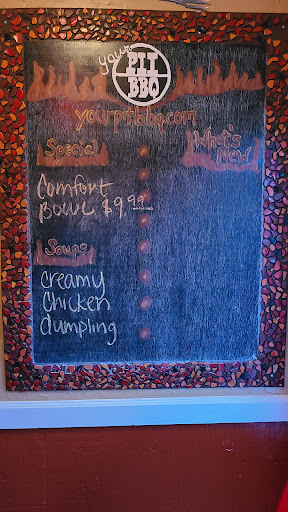 your
PIT
BBQ
yourpitbbq.com
Special
What's
New
Comfort
Bowl $9.99
Soups
Creamy
Chicken
dumpling